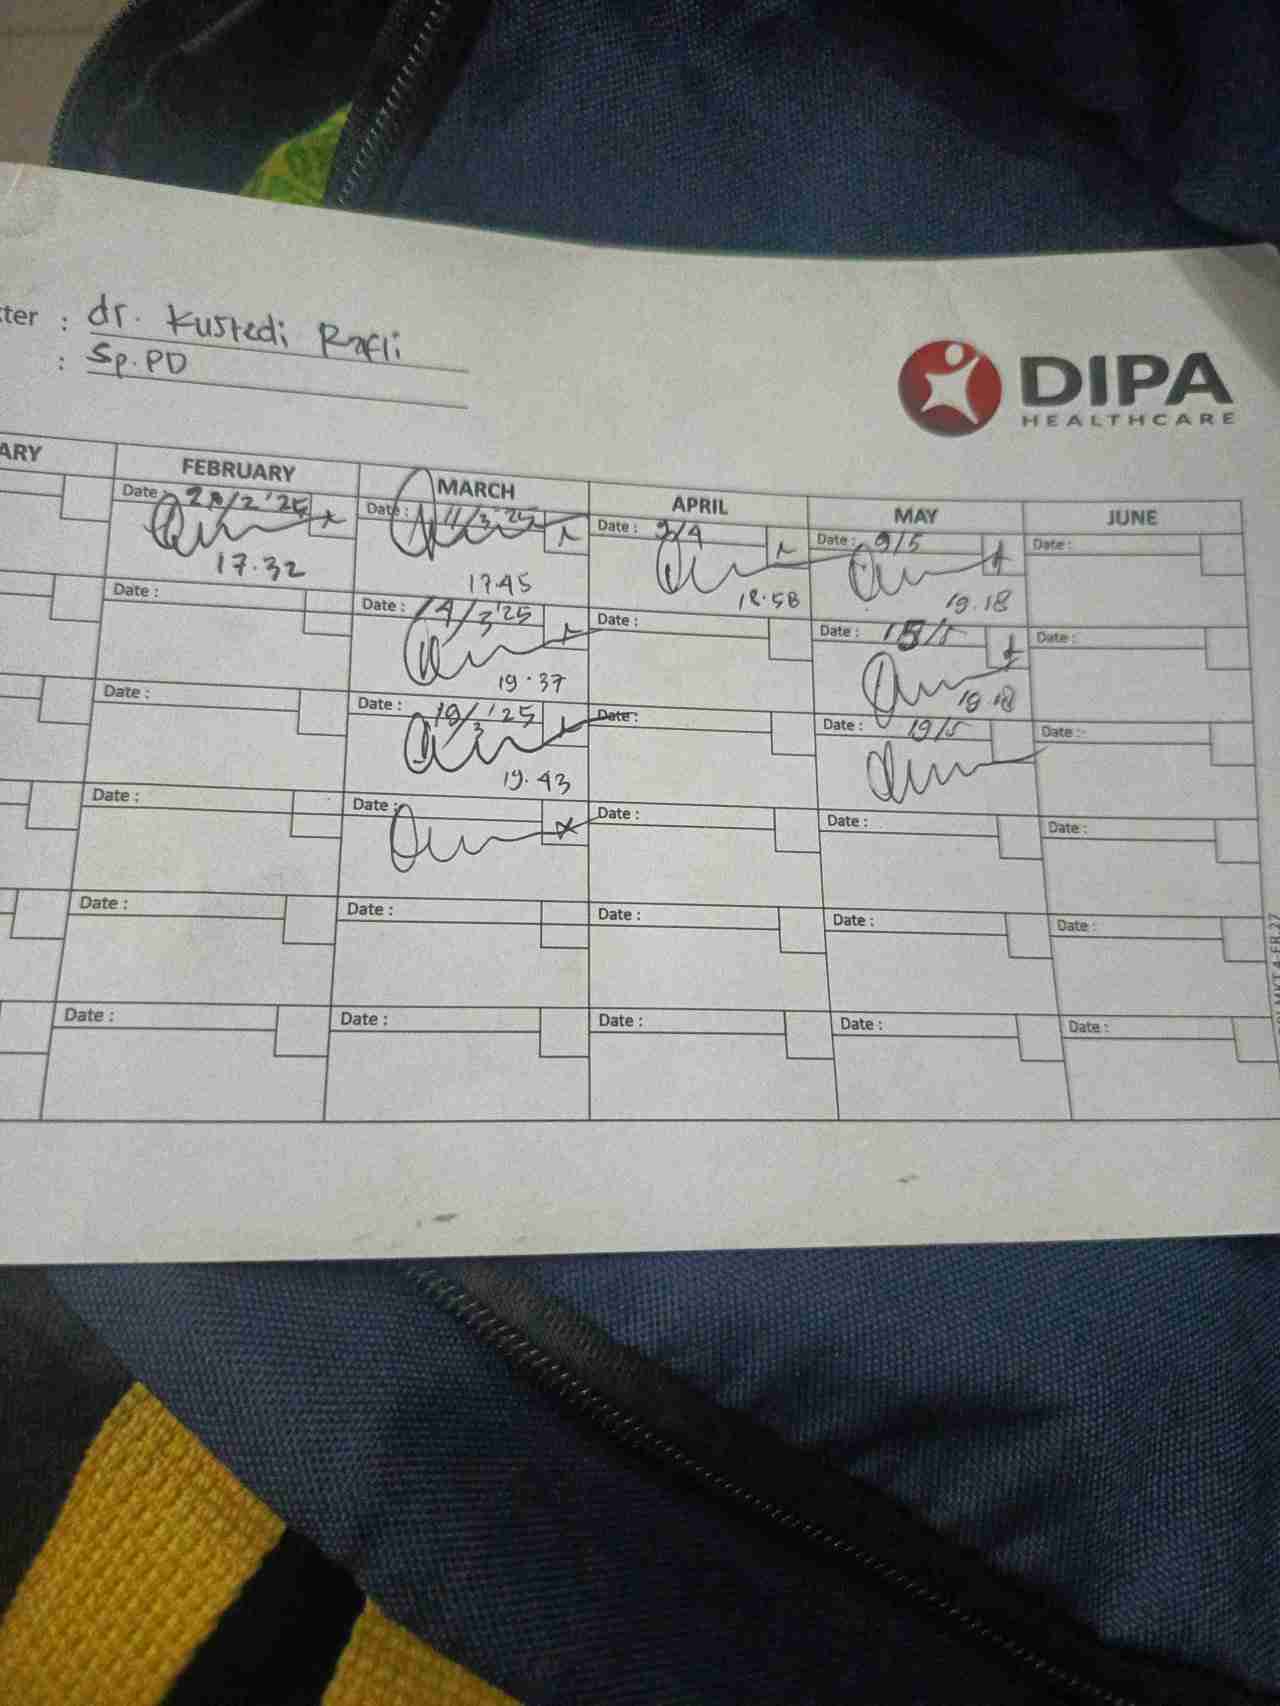 ter : dr. Kustedi Rafli
: Sp.PD
DIPA
HEALTHCARE
ARY FEBRUARY MARCH APRIL MAY JUNE
Date : 2'25 Date : 11/3'25 Date : 9/4 Date : 9/5 Date :
17.32 17.45 18.58 19.18
Date : Date : 14/3'25 Date : Date : 15/5 Date :
19.37 19.18
Date : Date : 19/3'25 Date : Date : 19/5 Date :
19.43
Date : Date : Date : Date : Date :
Date : Date : Date : Date : Date :
Date : Date : Date : Date : Date :